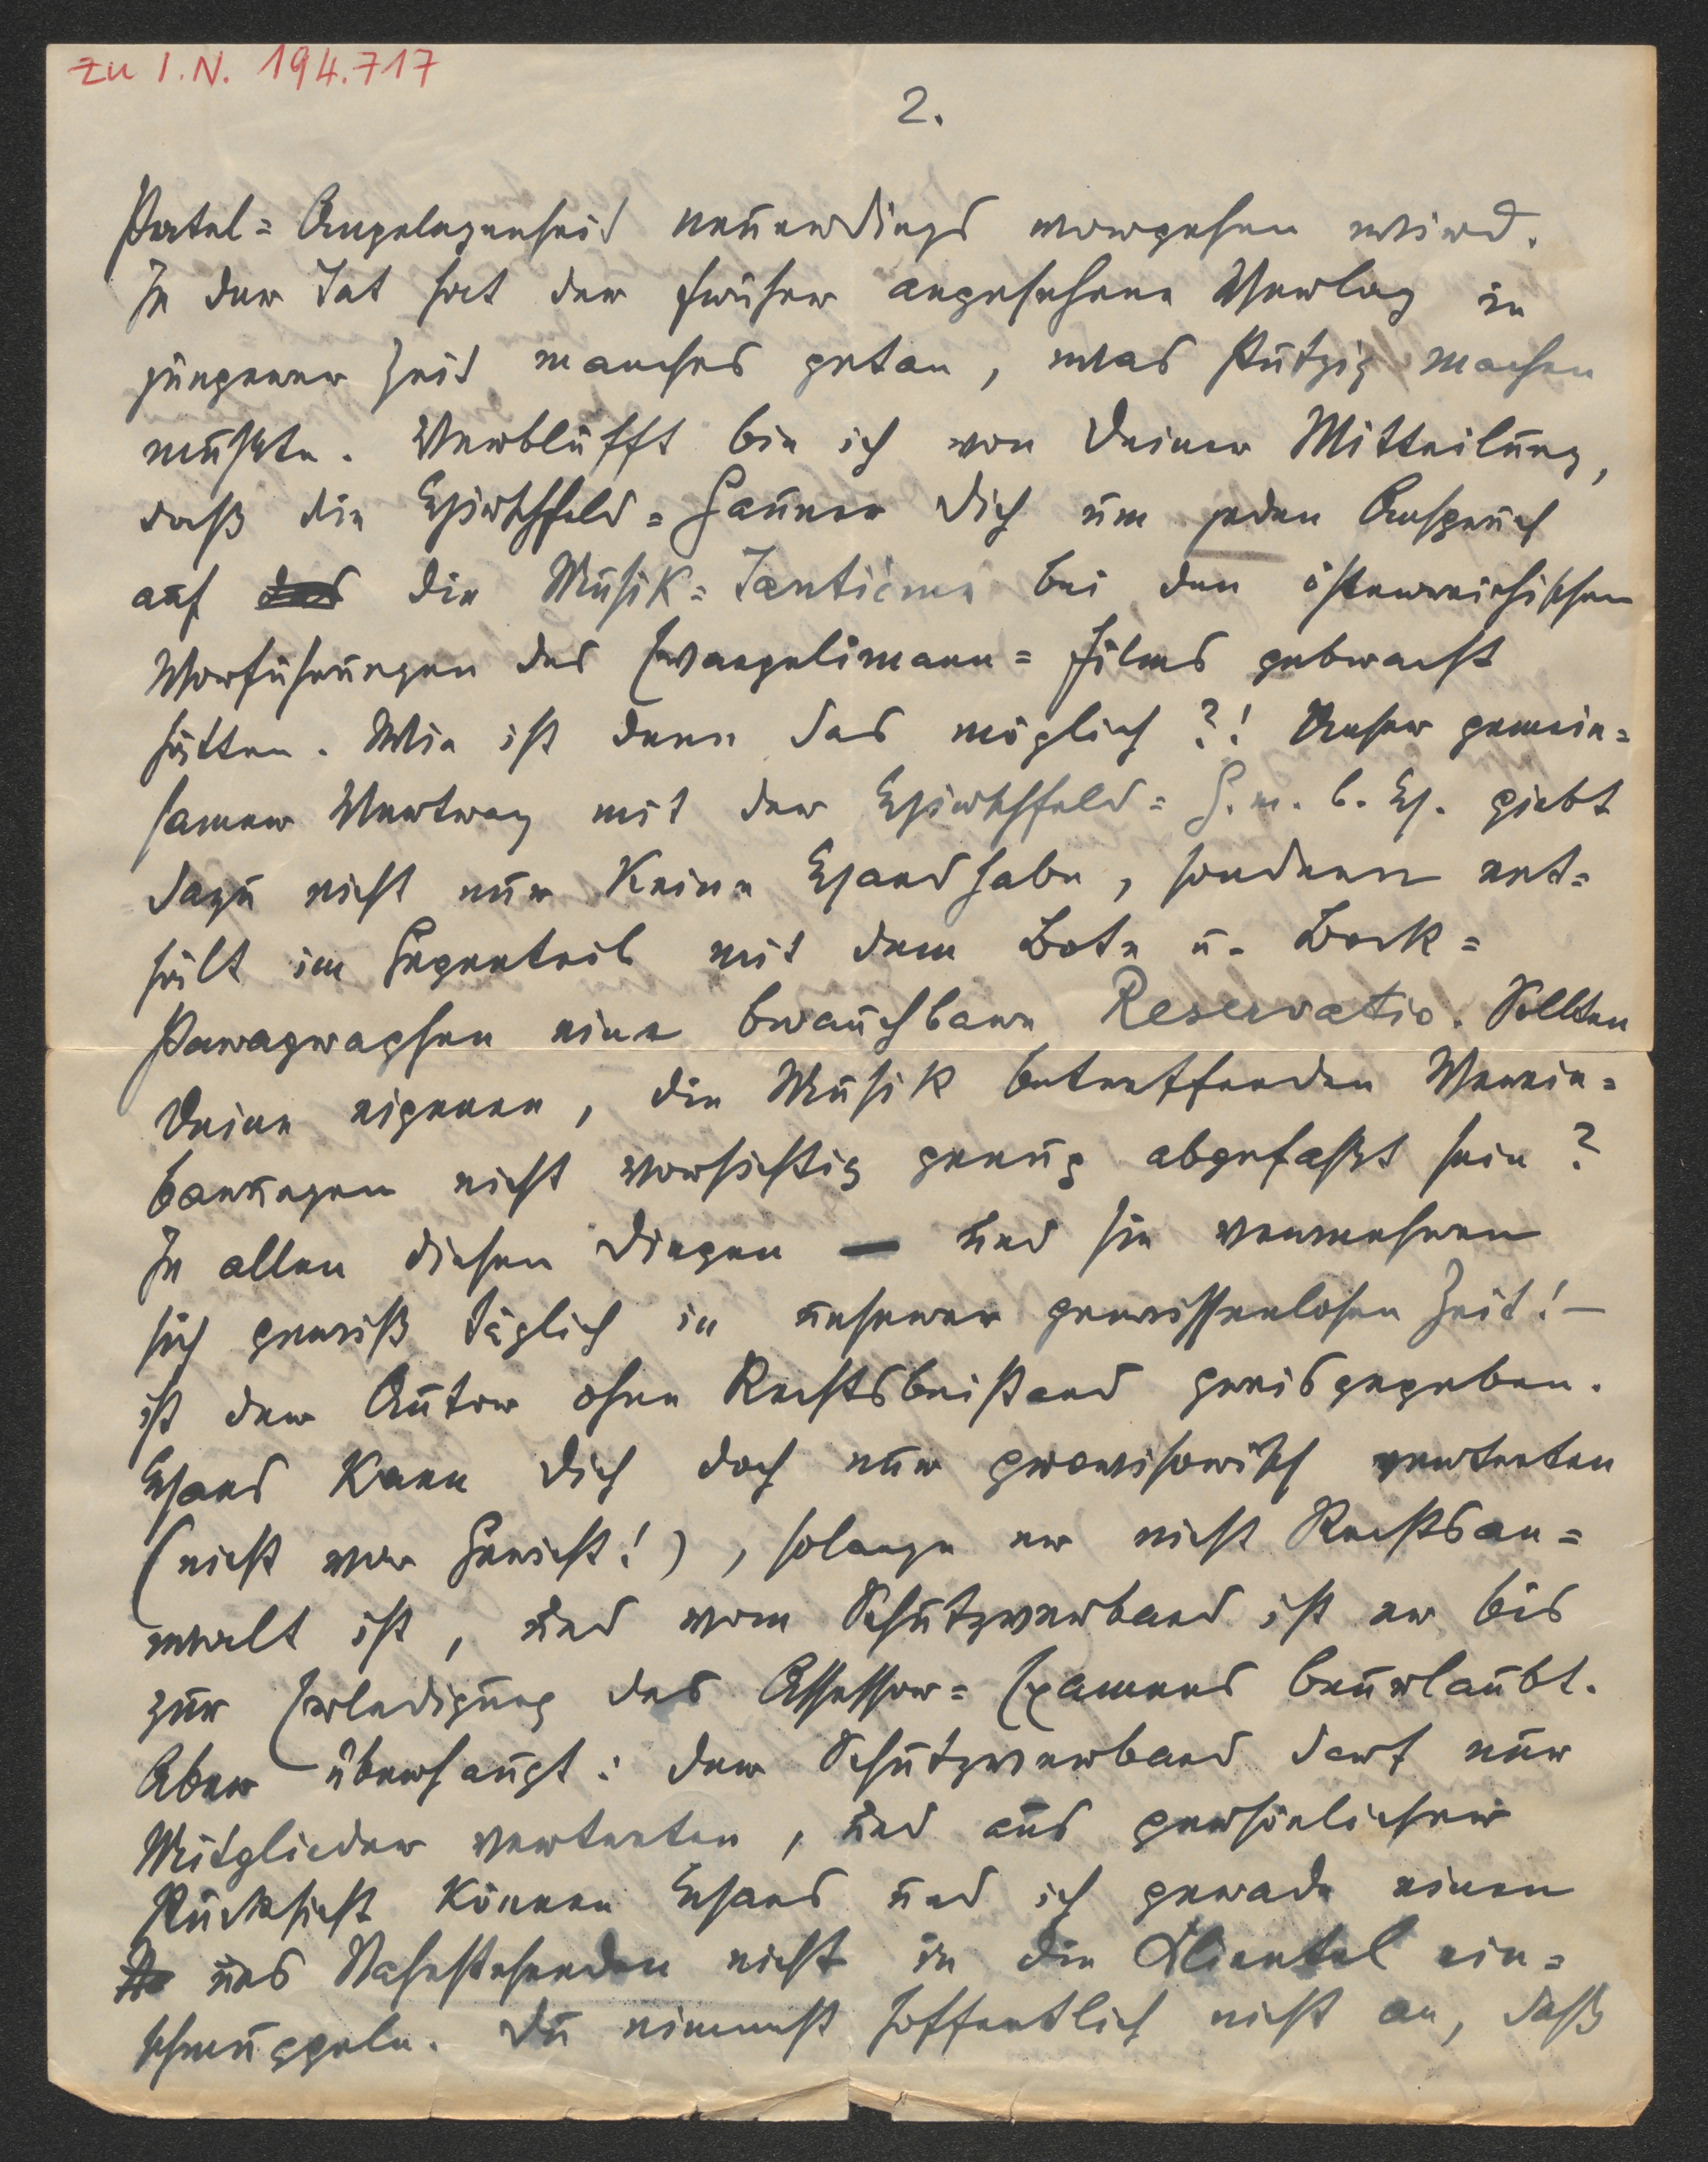 zu I.N. 194.717
2.
Patel=Angelegenheit neuerdings vorgehen wird.
In der Tat hat der früher angesehene Verlag in
jüngerer Zeit manches getan, was stutzig machen
müsste. Verblüfft bin ich von Deiner Mitteilung,
daß die Hirschfeld=Gauner Dich um jeden Anspruch
auf die Musik=Tantième bei den österreichischen
Vorführungen des Evangelimann=Films gebracht
hätten. Wie ist denn das möglich?! Unser gemein=
samer Vertrag mit der Hirschfeld=G.m.b.H. giebt
dazu nicht nur keine Handhabe, sondern ent=
hält im Gegenteil mit dem Bote u. Bock=
Paragraphen eine brauchbare Reservatio. Sollten
Deine eigenen, die Musik betreffenden Verein=
barungen nicht vorsichtig genug abgefaßt sein?
In allen diesen Dingen — und sie vermehren
sich gewiß täglich in unserer gewissenlosen Zeit! —
ist der Autor ohne Rechtsbeistand preisgegeben.
Hans kann Dich doch nur provisorisch vertreten
(nicht vor Gericht!), solange er nicht Rechtsan=
walt ist, und vom Schutzverband ist er bis
zur Erledigung des Assessor=Examens beurlaubt.
Aber überhaupt: der Schutzverband darf nur
Mitglieder vertreten, und aus persönlicher
Rücksicht können Hans und ich gerade einen
uns Nahestehenden nicht in die Klientel ein=
schmuggeln. Du nimmst hoffentlich nicht an, daß